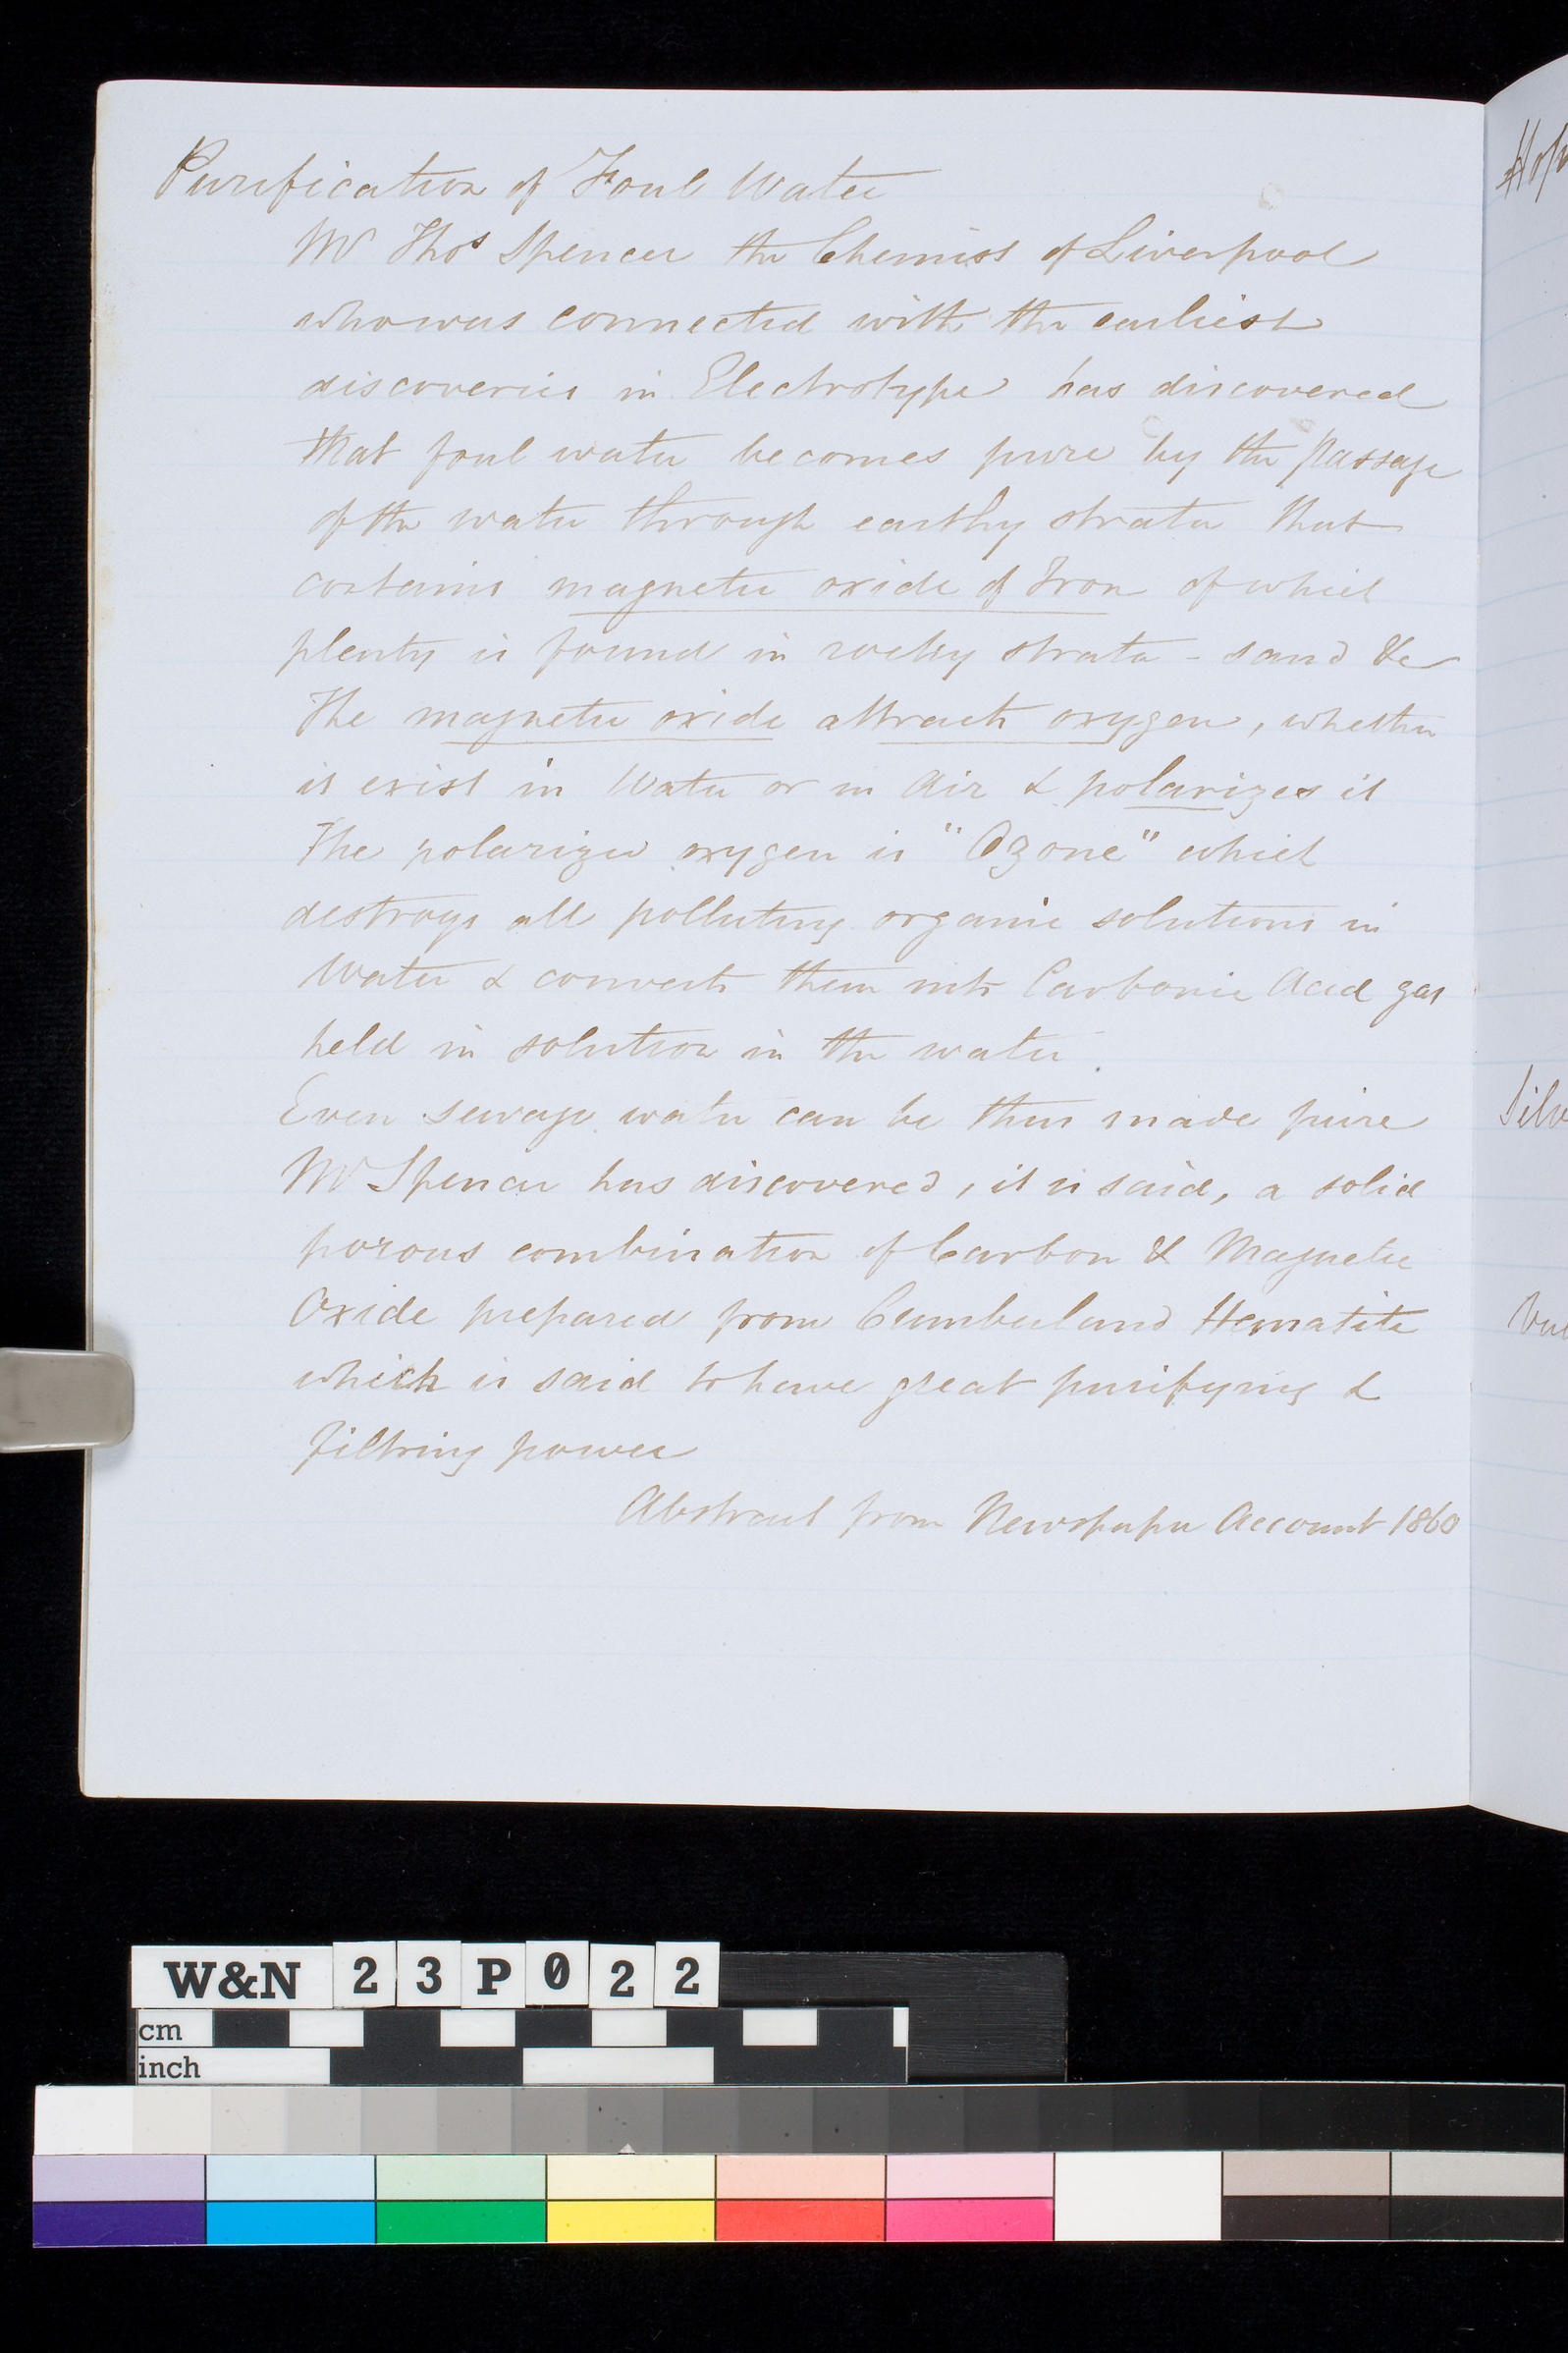 Purification of Foul Water
Mr Thos Spencer the Chemist of Liverpool
who was connected with the earliest
discoveries in Electrotype has discovered
that foul water becomes pure by the passage
of the water through earthy strata that
contains magnetic oxide of Iron of which
plenty is found in rocky strata - sand &c
The magnetic oxide attracts oxygen, whether
it exist in Water or in Air & polarizes it
The polarized oxygen is "Ozone" which
destroys all polluting organic solutions in
Water & converts them into Carbonic Acid gas
held in solution in the water.
Even sewage water can be thus made pure
Mr Spencer has discovered, it is said, a solid
porous combination of Carbon & Magnetic
Oxide prepared from Cumberland Hematite
which is said to have great purifying &
filtring power
Abstract from Newspaper Account 1860
W&N 23P022
cm
inch